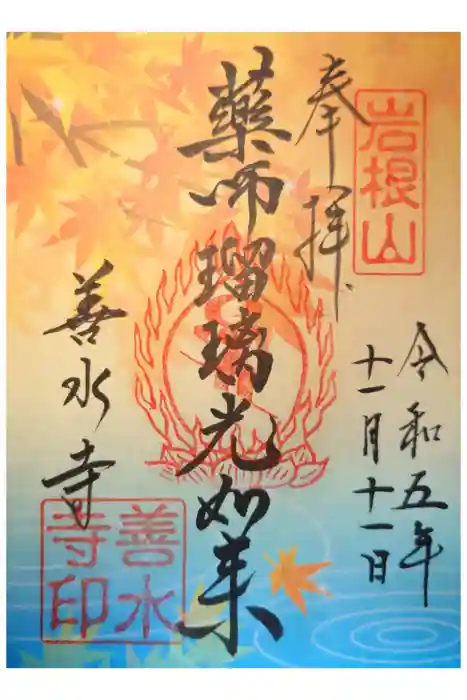 岩根山
奉拝
令和五年
十一月十一日
藥师瑠璃光如来
善水寺
善水寺印